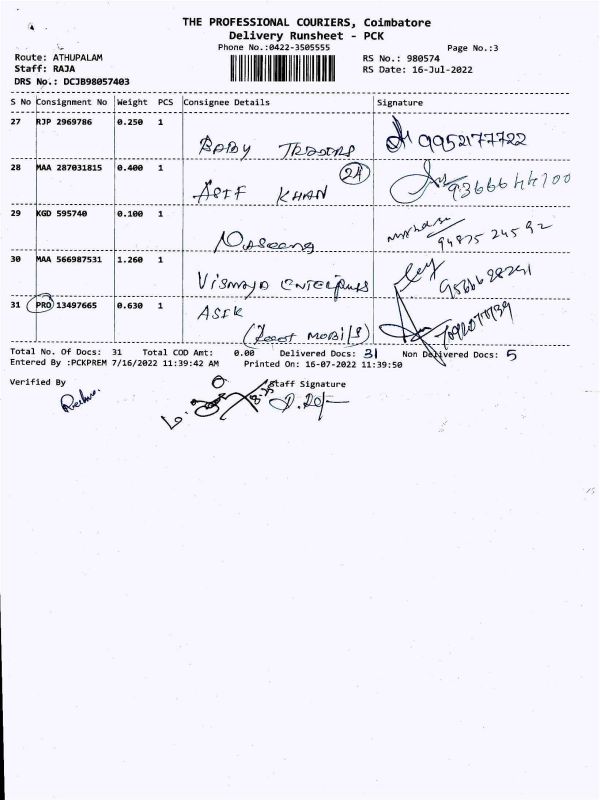 THE PROFESSIONAL COURIERS, Coimbatore
Delivery Runsheet - PCK
Phone No.:0422-3505555 Page No.:3
Route: ATHUPALAM RS No.: 980574
Staff: RAJA RS Date: 16-Jul-2022
DRS No.: DCJB98057403
S No Consignment No Weight PCS Consignee Details Signature
27 RJP 2969786 0.250 1
BABY TRADERS 9952177722
28 MAA 287031815 0.400 1
24
ASIF KHAN
29 KGD 595740 0.100 1
94875 24592
30 MAA 566987531 1.260 1
31 PRO 13497665 0.630 1
ASIK
Total No. Of Docs: 31 Total COD Amt: 0.00 Delivered Docs: 31 Non Delivered Docs: 5
Entered By :PCKPREM 7/16/2022 11:39:42 AM Printed On: 16-07-2022 11:39:50
Verified By Staff Signature